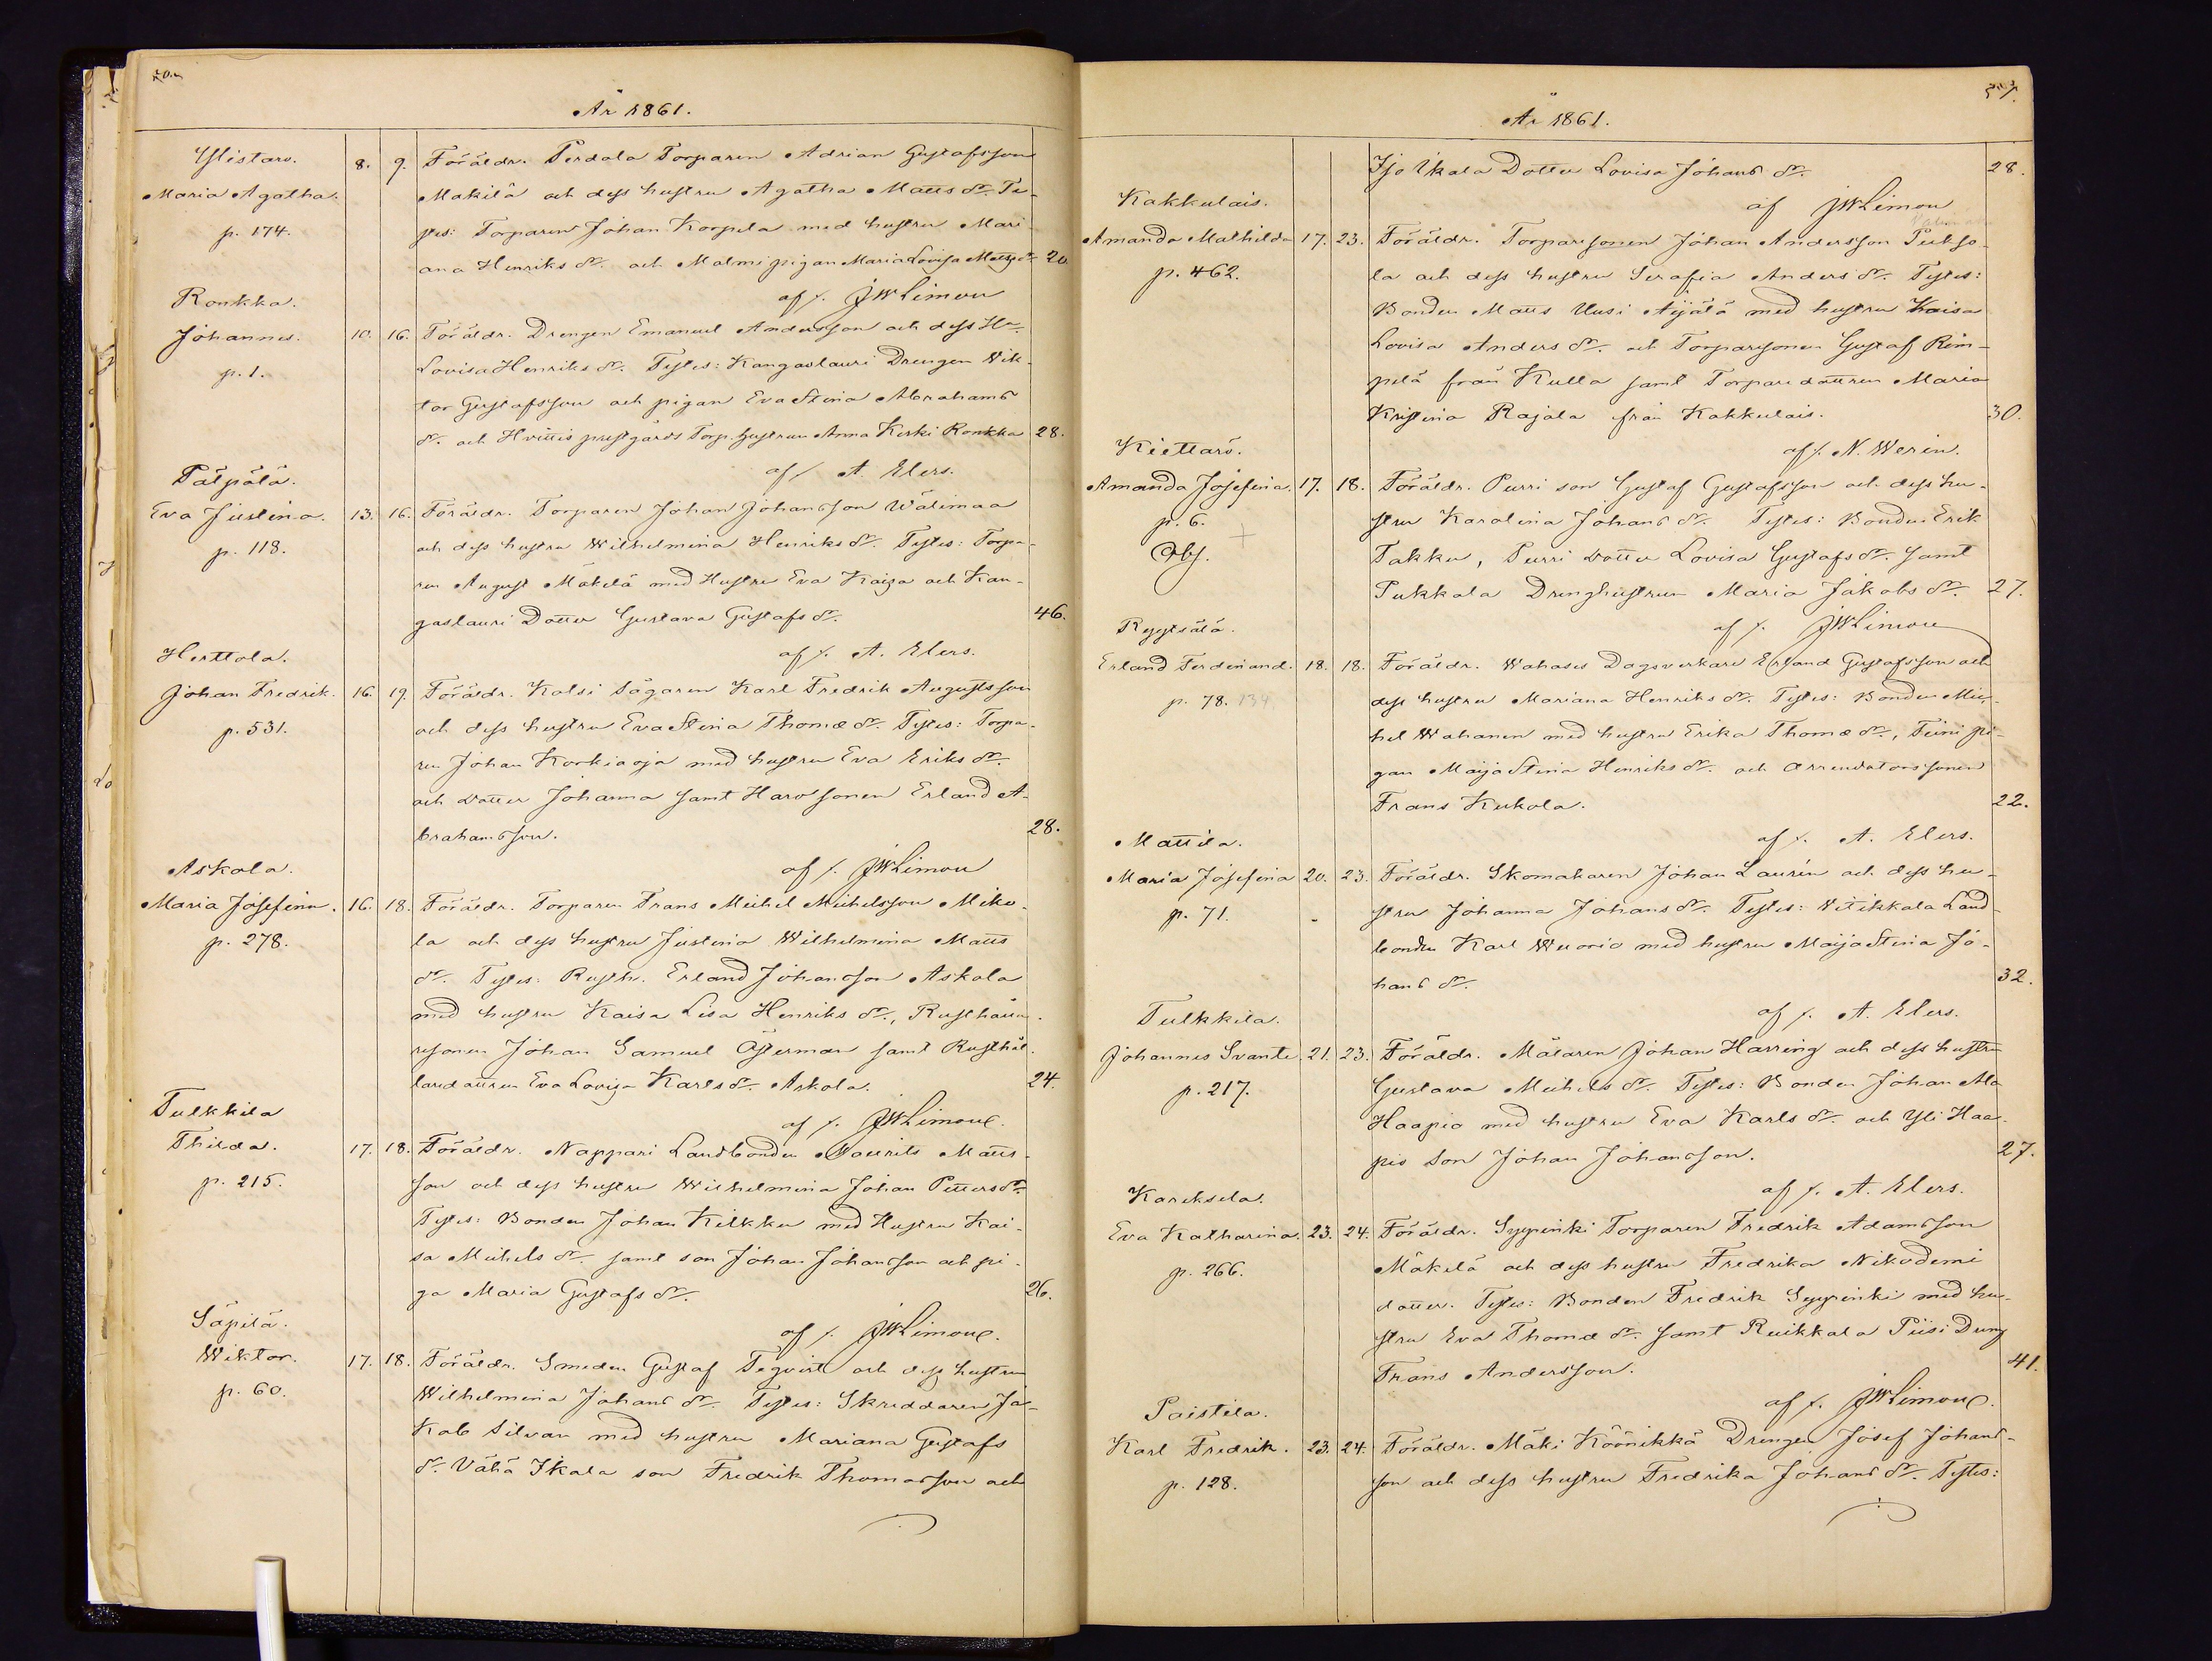 År 1861.
Ylistaro.
Maria Agatha.
p. 174.
8. 9. Föräldr. Perdala Torparen Adrian Gustafsson
Makilä och dess hustru Agatha Matts dr. Te-
stes: Torparen Johan Korpela med hustru Mari
ana Henriks dr. och Malmi pigan Maria Lovisa Matts dr. 20
af /. JWLimon
Ronkka.
Johannes.
p. 1.
10. 16. Föräldr. Drengen Emanuel Andersson och dess Hu.
Lovisa Henriks dr. Testes: Kangaslauri Drengen Wik-
tor Gustafsson och pigan Eva Stina Abrahams
dr. och Hvittis prestgårds Torp. hustrun Anna Kerki Ronkka 28.
af /. A. Elers.
Pälpälä.
Eva Justina.
p. 118.
13. 16. Föräldr. Torparen Johan Johansson Wälimaa
och dess hustru Wilhelmina Henriks dr. Testes: Torpa-
ren August Mäkelä med Hustru Eva Kaisa och Kan-
gaslauri Dotter Gustava Gustafs dr. 46.
af /. A. Elers.
Herttola.
Johan Fredrik.
p. 531.
16. 19. Föräldr. Kalsi Sågaren Karl Fredrik Augustsson
och dess hustru Eva Stina Thomæ dr. Testes: Torpa-
ren Johan Korkiaoja med hustru Eva Eriks dr.
och dotter Johanna samt Haro sonen Erland A-
brahamsson. 28.
af /. JWLimon
Askola.
Maria Josefina.
p. 278.
16. 18. Föräldr. Torparen Frans Michel Michelsson Miko-
la och dess hustru Justina Wilhelmina Matts
dr. Testes: Rusth. Erland Johansson Askola
med hustru Kaisa Lisa Henriks dr., Rusthålla-
resonen Johan Samuel Österman samt Rusthål-
laredottren Eva Lovisa Karls dr. Askola. 24.
af /. JWLimon.
Tulkkila
Thilda.
p. 215.
17. 18. Föräldr. Nappari Landbonden Maurits Matts-
son och dess hustru Wilhelmina Johan Petters dr.
Testes: Bonden Johan Kilkku med Hustru Kai-
sa Michels dr. samt son Johan Johansson och pi-
ga Maria Gustafs dr. 26.
af /. JWLimon.
Säpilä.
Wiktor.
p. 60.
17. 18. Föräldr. Smeden Gustaf Tegvist och dess hustru
Wilhelmina Johans dr. Testes: Skreddaren Ja-
kob Silvan med hustru Mariana Gustafs
dr. Vähä Ikala son Fredrik Thomasson och
57.
År 1861.
Iso Ikala Dotter Lovisa Johans dr. 28.
af JWLimon
Kakkulais.
Amanda Mathilda
p. 462.
17. 23. Föräldr. Torparesonen Johan Andersson Pukso-
la och dess hustru Serafia Anders dr. Testes:
Bonden Matts Uusi Äijälä med hustru Kaisa
Lovisa Anders dr. och Torparsonen Gustaf Rim-
pelä från Kulla samt Torparedottren Maria
Kristina Rajala från Kakkulais. 30.
af /. N. Werin.
Kiettarö.
Amanda Josefina.
p. 6.
Obs.
17. 18. Föräldr. Purri son Gustaf Gustafsson och dess hu-
stru Karolina Johans dr. Testes: Bonden Erik
Takku, Purri dotter Lovisa Gustafs dr. samt
Pukkala Drenghustrun Maria Jakobs dr. 27.
af /. JWLimon
Ryytsälä.
Erland Ferdinand.
p. 78. 134
18. 18. Föräldr. Wahases Dagsverkare Erland Gustafsson och
dess hustru Mariana Henriks dr. Testes: Bonden Mic-
hel Wahanen med hustru Erika Thomæ dr., Tiini pi-
gan Maija Stina Henriks dr. och Arrendatorssonen
Frans Kukola. 22.
af /. A. Elers.
Mattila.
Maria Josefina
p. 71.
20. 23. Föräldr. Skomakaren Johan Laurén och dess hu-
stru Johanna Johans dr. Testes: Witikkala Land-
bonden Karl Wuorio med hustru Maija Stina Jo-
hans dr. 32.
af /. A. Elers.
Tulkkila.
Johannes Svante
p. 217.
21. 23. Föräldr. Målaren Johan Harring och dess hustru
Gustava Michels dr. Testes: Bonden Johan Ala
Haapio med hustru Eva Karls dr. och Yli Haa-
pio son Johan Johansson. 27.
af /. A. Elers.
Kareksela.
Eva Katharina.
p. 266.
23. 24. Föräldr. Syypinki Torparen Fredrik Adamsson
Mäkelä och dess hustru Fredrika Nikodemi
dotter. Testes: Bonden Fredrik Syypinki med hu-
stru Eva Thomæ dr. samt Ruikkala Piisi Dreng
Frans Andersson. 41.
af /. JWLimon.
Paistila.
Karl Fredrik.
p. 128.
23. 24. Föräldr. Mäki Köönikkä Drengen Josef Johans-
son och dess hustru Fredrika Johans dr. Testes: